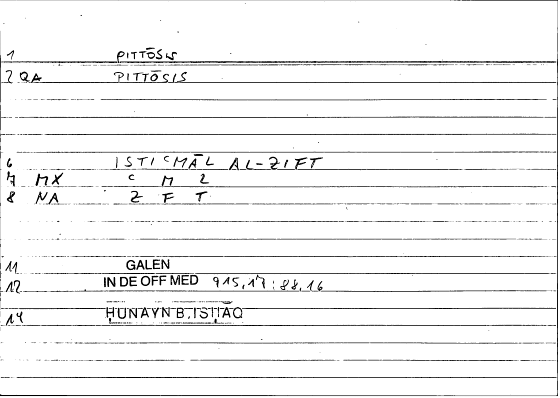 1 PITTŌSIS
2 QA PITTŌSIS
6 ISTIʿMĀL AL-ZIFT
7 MX ʿ M L
8 NA Z F T
11 GALEN
12 IN DE OFF MED 915,17:88,16
14 ḤUNAYN B. ISḤĀQ